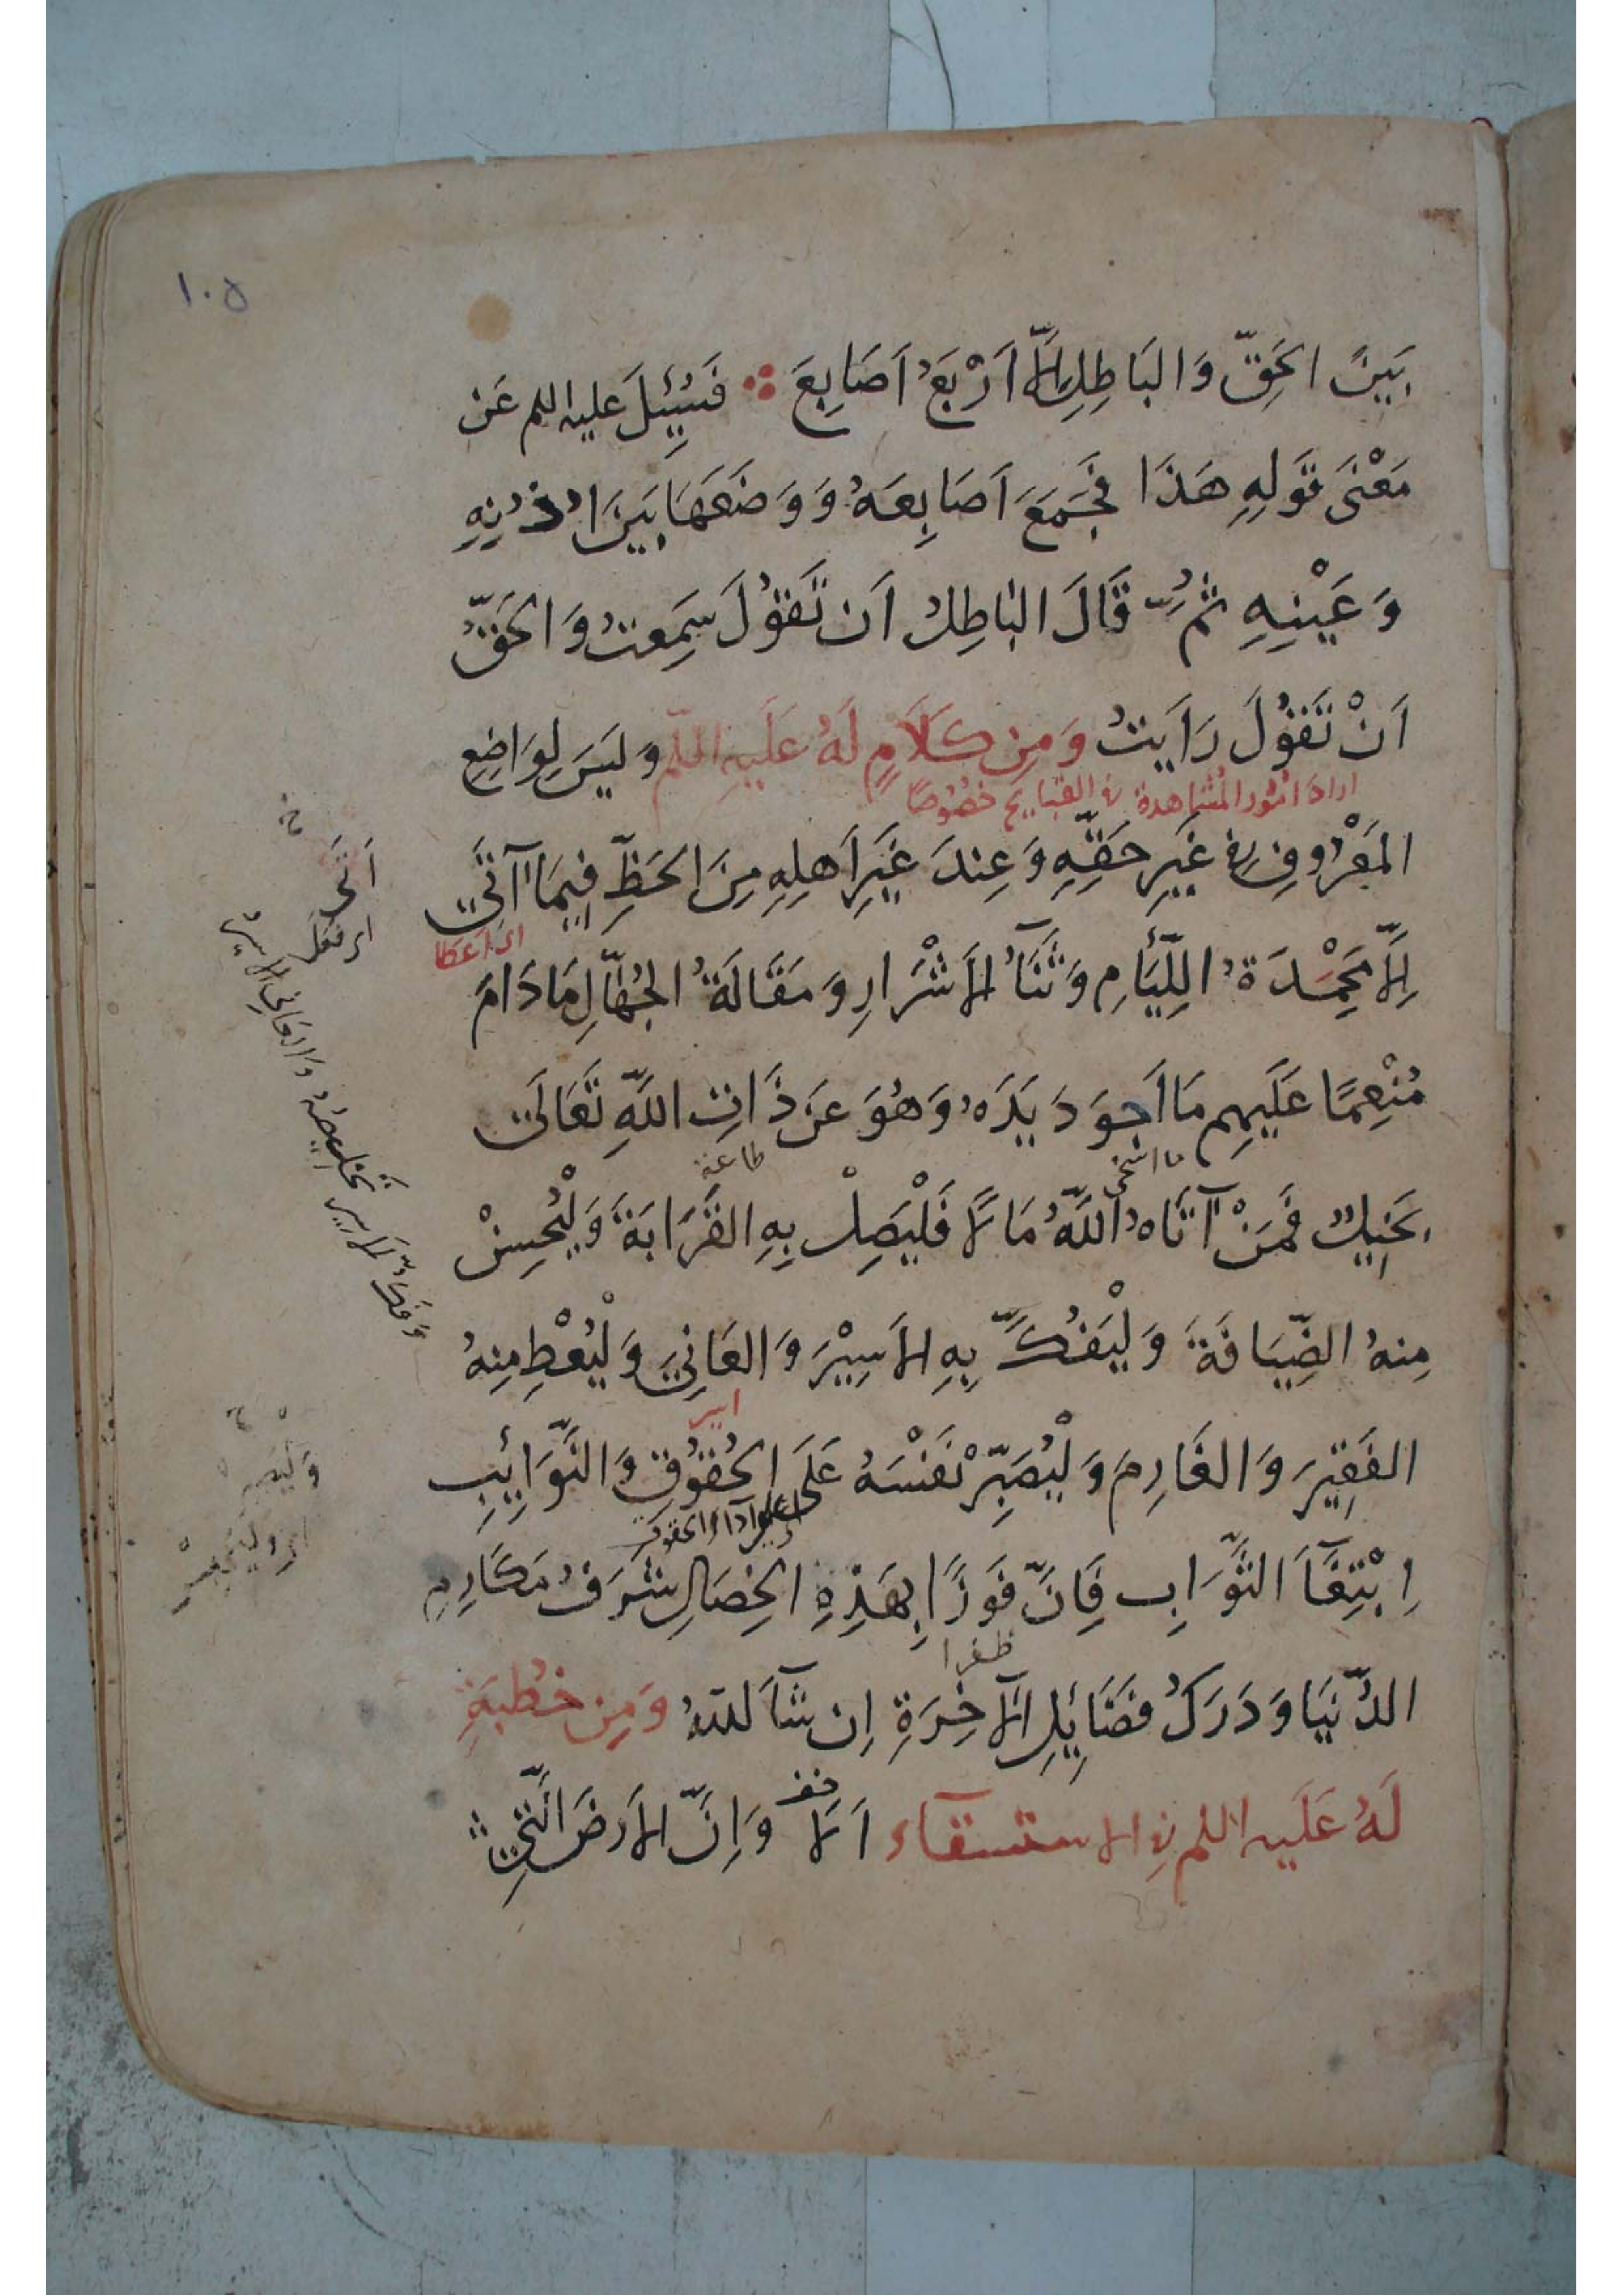 ١٠٥
بَيْنَ الحَقِّ وَالبَاطِلِ اِلَّا اَرْبَعُ اَصَابِعَ فَسُئِلَ عليه اللم عَن
مَعْنَى قَولِهِ هَذَا فَجَمَعَ اَصَابِعَهُ وَوَضَعَهَا بَينَ اُذُنِهِ
وَعَيْنِهِ ثُمَّ قَالَ البَاطِلُ اَن تَقُولَ سَمِعتُ وَالحَقُّ
اَنْ تَقُولَ رَاَيتُ وَمِن كَلَامٍ لَهُ عَلَيهِ اللم وَلَيسَ لِوَاضِعِ
اراد امور المشاهدة في القبايح خصُوصًا
المَعْرُوفِ فِي غَيرِ حَقِّهِ وَعِندَ غَيرِ اَهلِهِ مِنَ الحَظِّ فِيمَا آتَى
اى اعطا
اِلَّا مَحْمَدَةُ اللِّيَامِ وَثَنَآءُ الاَشْرَارِ وَمَقَالَةُ الجُهَّالِ مَادَامَ
مُنْعِمًا عَلَيهِم مَا اَجوَدَ يَدَهُ وَهُوَ عَن ذَاتِ اللَّهِ تَعَالَى
ما اسخى
طاعة
بَخِيلٌ فَمَنْ آتَاهُ اللَّهُ مَالًا فَليَصِلْ بِهِ القَرَابَةَ وَليُحسِنْ
مِنهُ الضِّيَافَةَ وَلْيَفُكَّ بِهِ الاَسِيْرَ وَالعَانِيَ وَلْيُعْطِ مِنهُ
اسير
الفَقِيرَ وَالغَارِمَ وَلْيُصَبِّرْ نَفْسَهُ عَلَى الحُقُوقِ وَالنَّوَائِبِ
اى على ادآء الحقوق
اِبْتِغَآءَ الثَّوَابِ فَاِنَّ فَوزًا بِهَذِهِ الخِصَالِ شَرَفُ مَكَارِمِ
ظفرا
الدُّنيَا وَدَرَكُ فَضَائِلِ الآخِرَةِ اِن شَآءَ اللهُ وَمِن خُطبَةٍ
لَهُ عَلَيه اللم في الاستسقاء اَلَا وَاِنَّ الاَرضَ الَّتِي
خ
اَتَى
اى فعل
وَليصبر